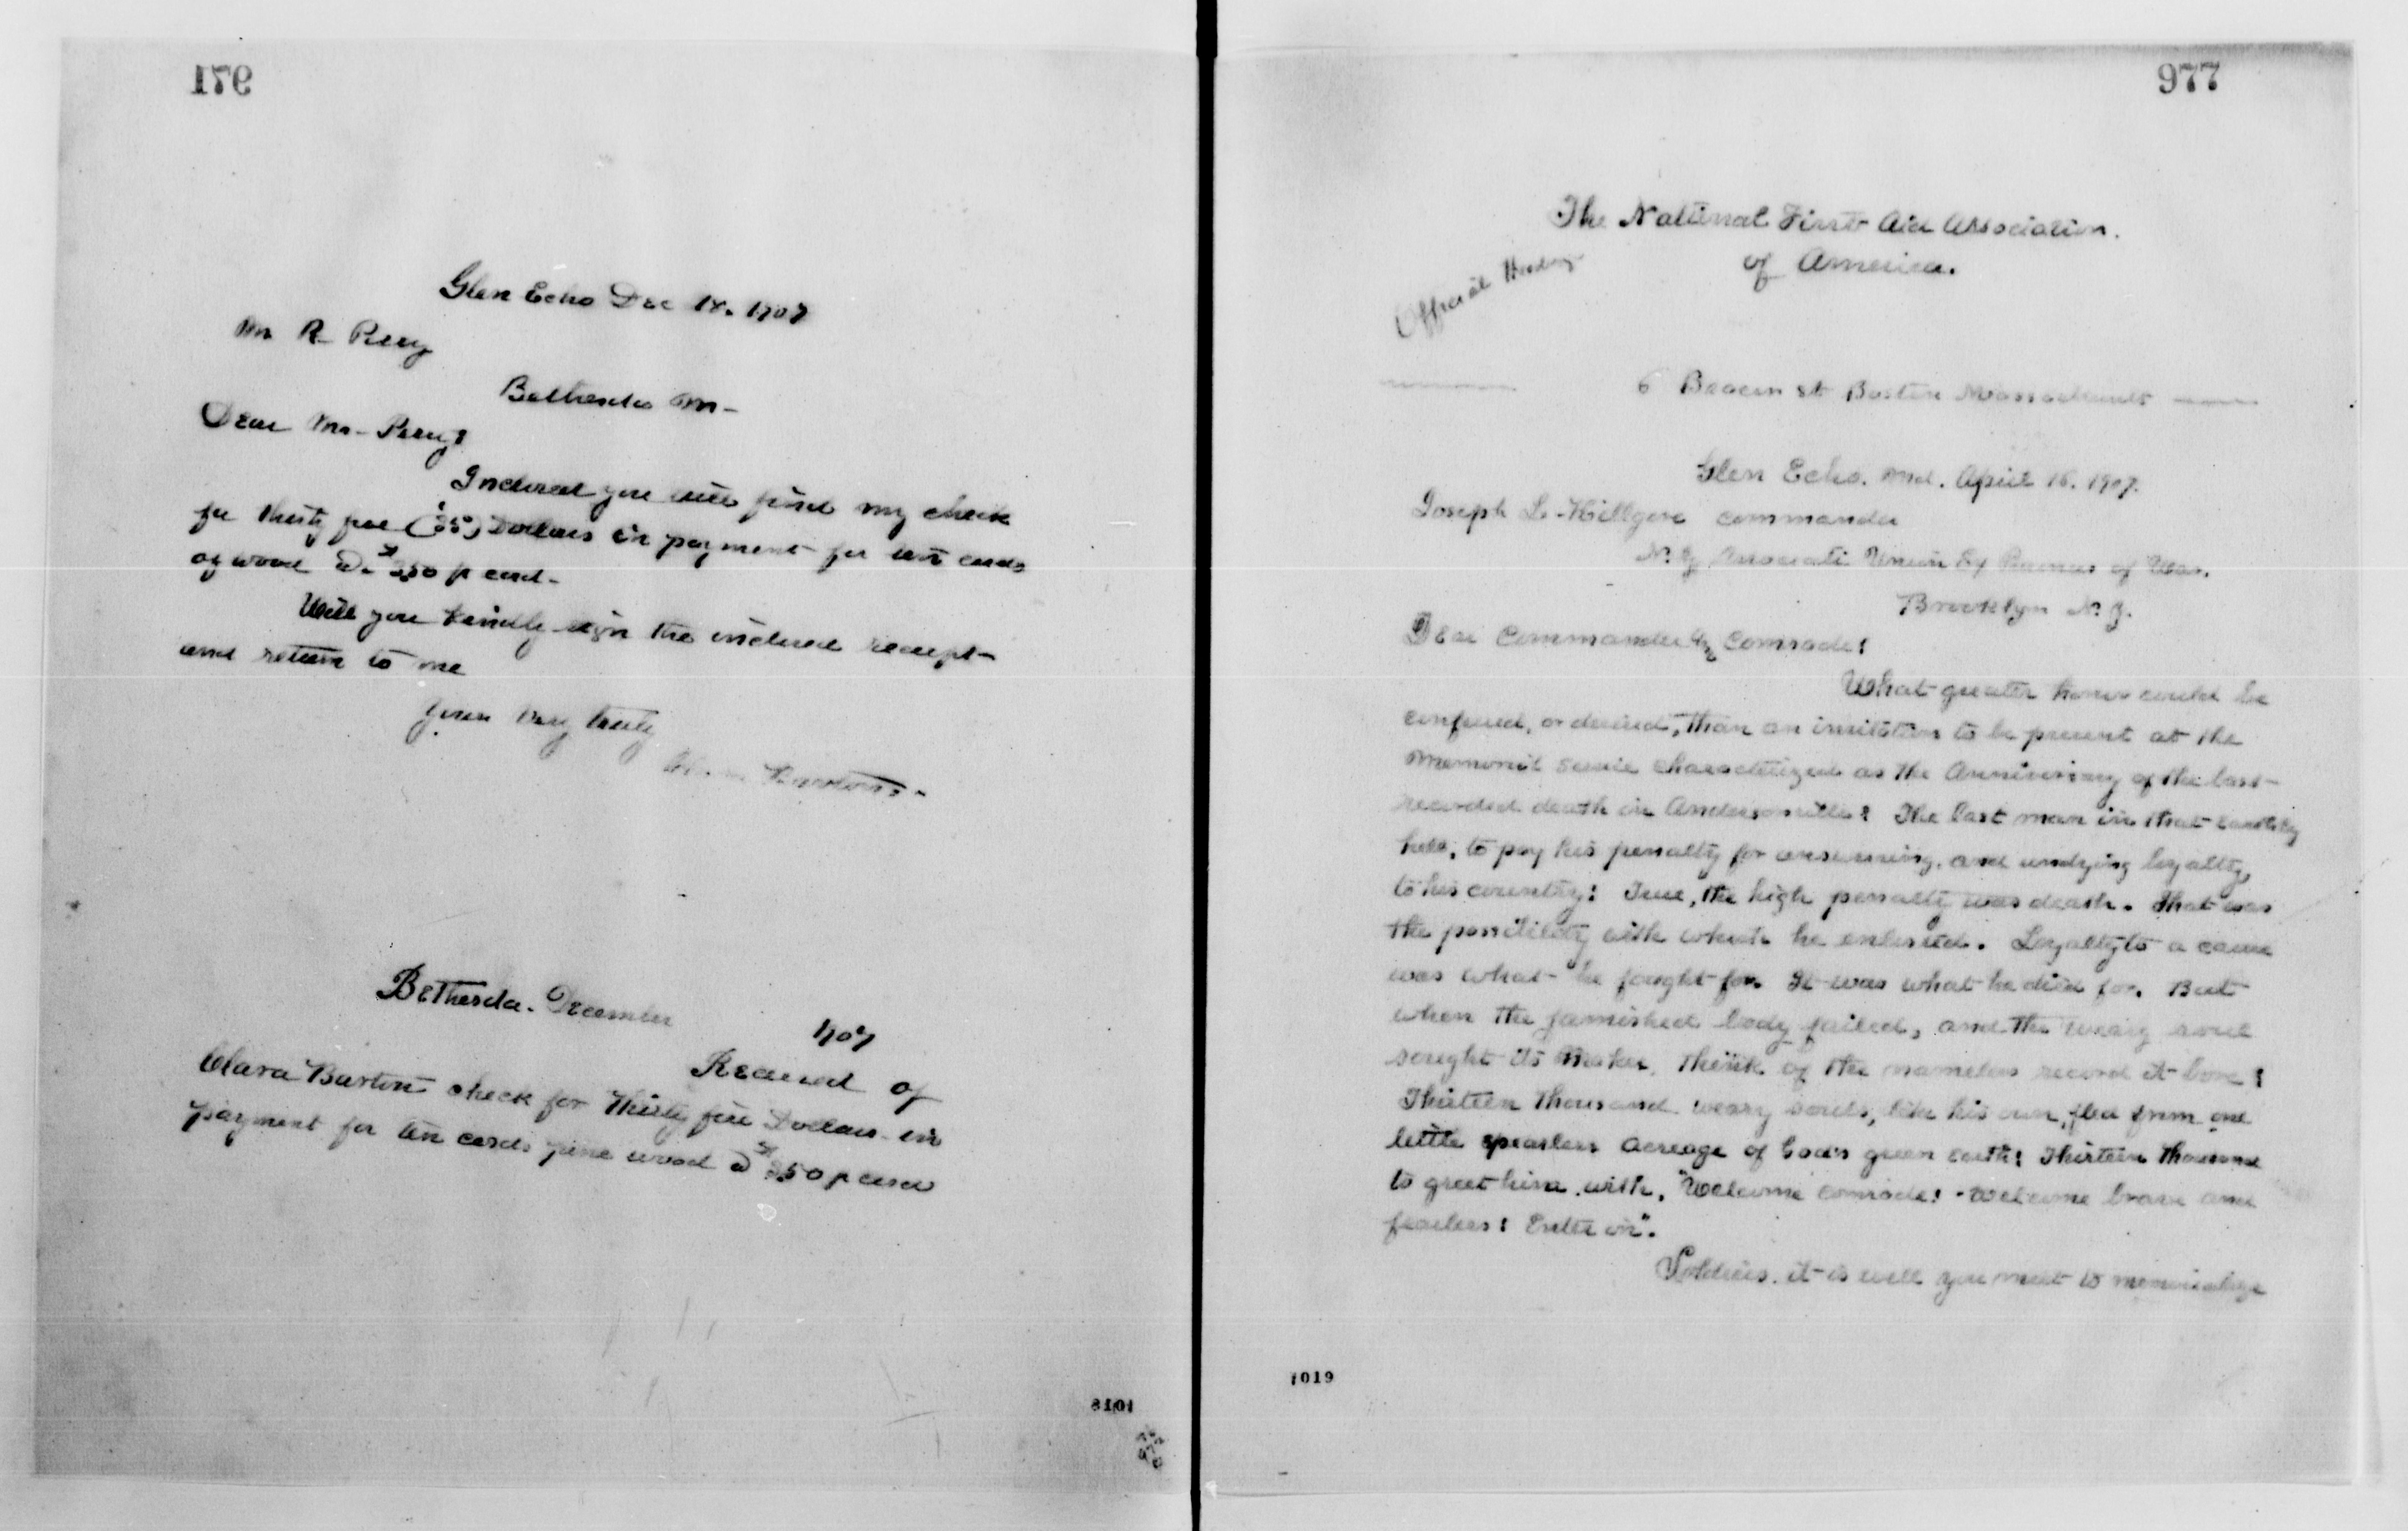 176
Glen Echo Dec 18. 1907
Mr R Perry
Bethesda Md
Dear Mr. Perry:
Inclosed you will find my check
for thirty five ($35) Dollars in payment for ten cords
of wood @ $3.50 p cord.
Will you kindly sign the inclosed receipt
and return to me
Yours very truly
Clara Barton.
Bethesda. December
1907
Received of
Clara Barton check for Thirty five Dollars in
payment for ten cords pine wood @ $3.50 p cord
1018
977
The National First Aid Association.
of America.
Official Heading
6 Beacon st Boston Massachusetts
Glen Echo. Md. April 16. 1907.
Joseph L. Killgore commander
N. Y. Associate Union Ex Prisoners of War.
Brooklyn N. Y.
Dear Commander & Comrade:
What greater honor could be
conferred, or desired, than an invitation to be present at the
memorial service characterized as the Anniversary of the last
recorded death in Andersonville? The last man in that earthly
hell, to pay his penalty for unswerving and undying loyalty,
to his country! True, the high penalty was death. That was
the possibility with which he enlisted. Loyalty to a cause
was what he fought for. It was what he died for. But
when the famished body failed, and the weary soul
sought its Maker, think of the nameless record it bore!
Thirteen thousand weary souls, like his own, fled from one
little spearless acreage of God's green earth! Thirteen thousand
to greet him with, "Welcome comrade! Welcome brave and
fearless! Enter in".
Soldiers, it is well you meet to memorialize
1019